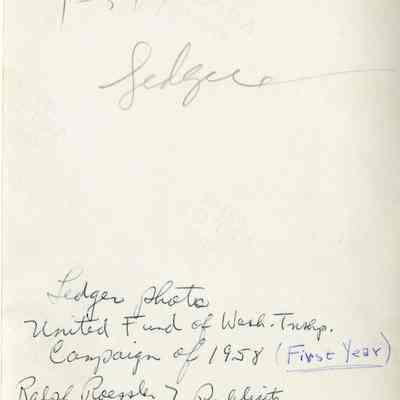 Ledger
Ledger photo
United Fund of Wash. Twshp.
Campaign of 1958 (First Year)
Ralph Roessler